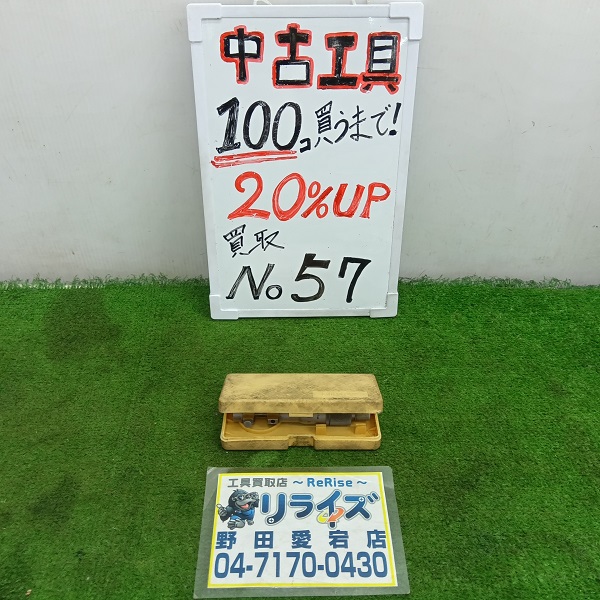 中古工具
100コ買うまで!
20%UP
買取
No57
工具買取店 ～ReRise～
リライズ
野田愛宕店
04-7170-0430